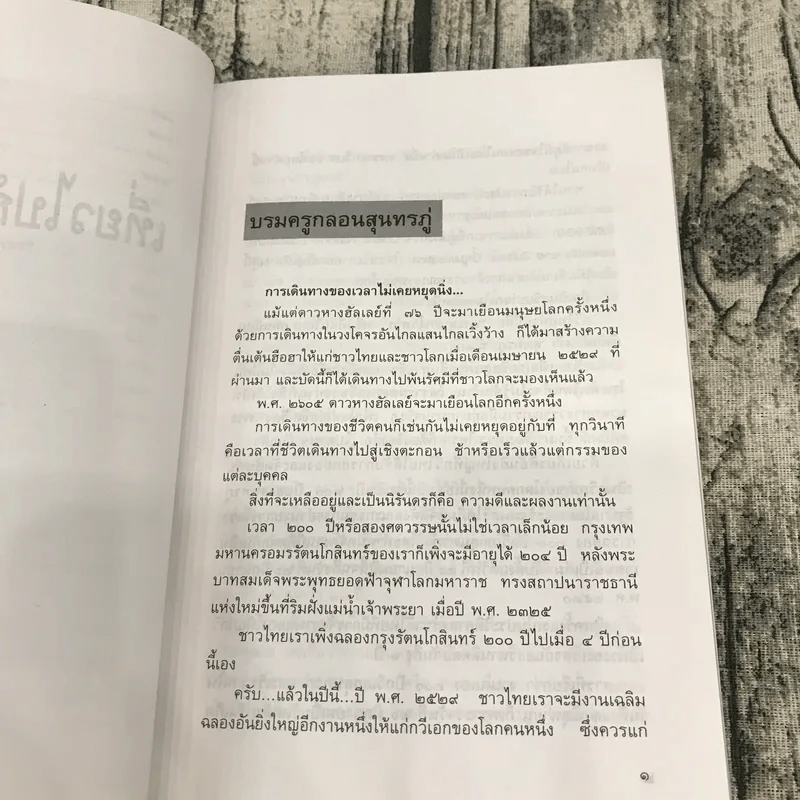 เที่ยวไป
บรมครูกลอนสุนทรภู่
การเดินทางของเวลาไม่เคยหยุดนิ่ง...
แม้แต่ดาวหางฮัลเลย์ที่ ๗๖ ปีจะมาเยือนมนุษยโลกครั้งหนึ่ง
ด้วยการเดินทางในวงโคจรอันไกลแสนไกลเวิ้งว้าง ก็ได้มาสร้างความ
ตื่นเต้นฮือฮาให้แก่ชาวไทยและชาวโลกเมื่อเดือนเมษายน ๒๕๒๙ ที่
ผ่านมา และบัดนี้ก็ได้เดินทางไปพ้นรัศมีที่ชาวโลกจะมองเห็นแล้ว
พ.ศ. ๒๖๐๕ ดาวหางฮัลเลย์จะมาเยือนโลกอีกครั้งหนึ่ง
การเดินทางของชีวิตคนก็เช่นกันไม่เคยหยุดอยู่กับที่ ทุกวินาที
คือเวลาที่ชีวิตเดินทางไปสู่เชิงตะกอน ช้าหรือเร็วแล้วแต่กรรมของ
แต่ละบุคคล
สิ่งที่จะเหลืออยู่และเป็นนิรันดรก็คือ ความดีและผลงานเท่านั้น
เวลา ๒๐๐ ปีหรือสองศตวรรษนั้นไม่ใช่เวลาเล็กน้อย กรุงเทพ
มหานครอมรรัตนโกสินทร์ของเราก็เพิ่งจะมีอายุได้ ๒๐๔ ปี หลังพระ
บาทสมเด็จพระพุทธยอดฟ้าจุฬาโลกมหาราช ทรงสถาปนาราชธานี
แห่งใหม่ขึ้นที่ริมฝั่งแม่น้ำเจ้าพระยา เมื่อปี พ.ศ. ๒๓๒๕
ชาวไทยเราเพิ่งฉลองกรุงรัตนโกสินทร์ ๒๐๐ ปีไปเมื่อ ๔ ปีก่อน
นี้เอง
ครับ...แล้วในปีนี้...ปี พ.ศ. ๒๕๒๙ ชาวไทยเราจะมีงานเฉลิม
ฉลองอันยิ่งใหญ่อีกงานหนึ่งให้แก่กวีเอกของโลกคนหนึ่ง ซึ่งควรแก่
๑